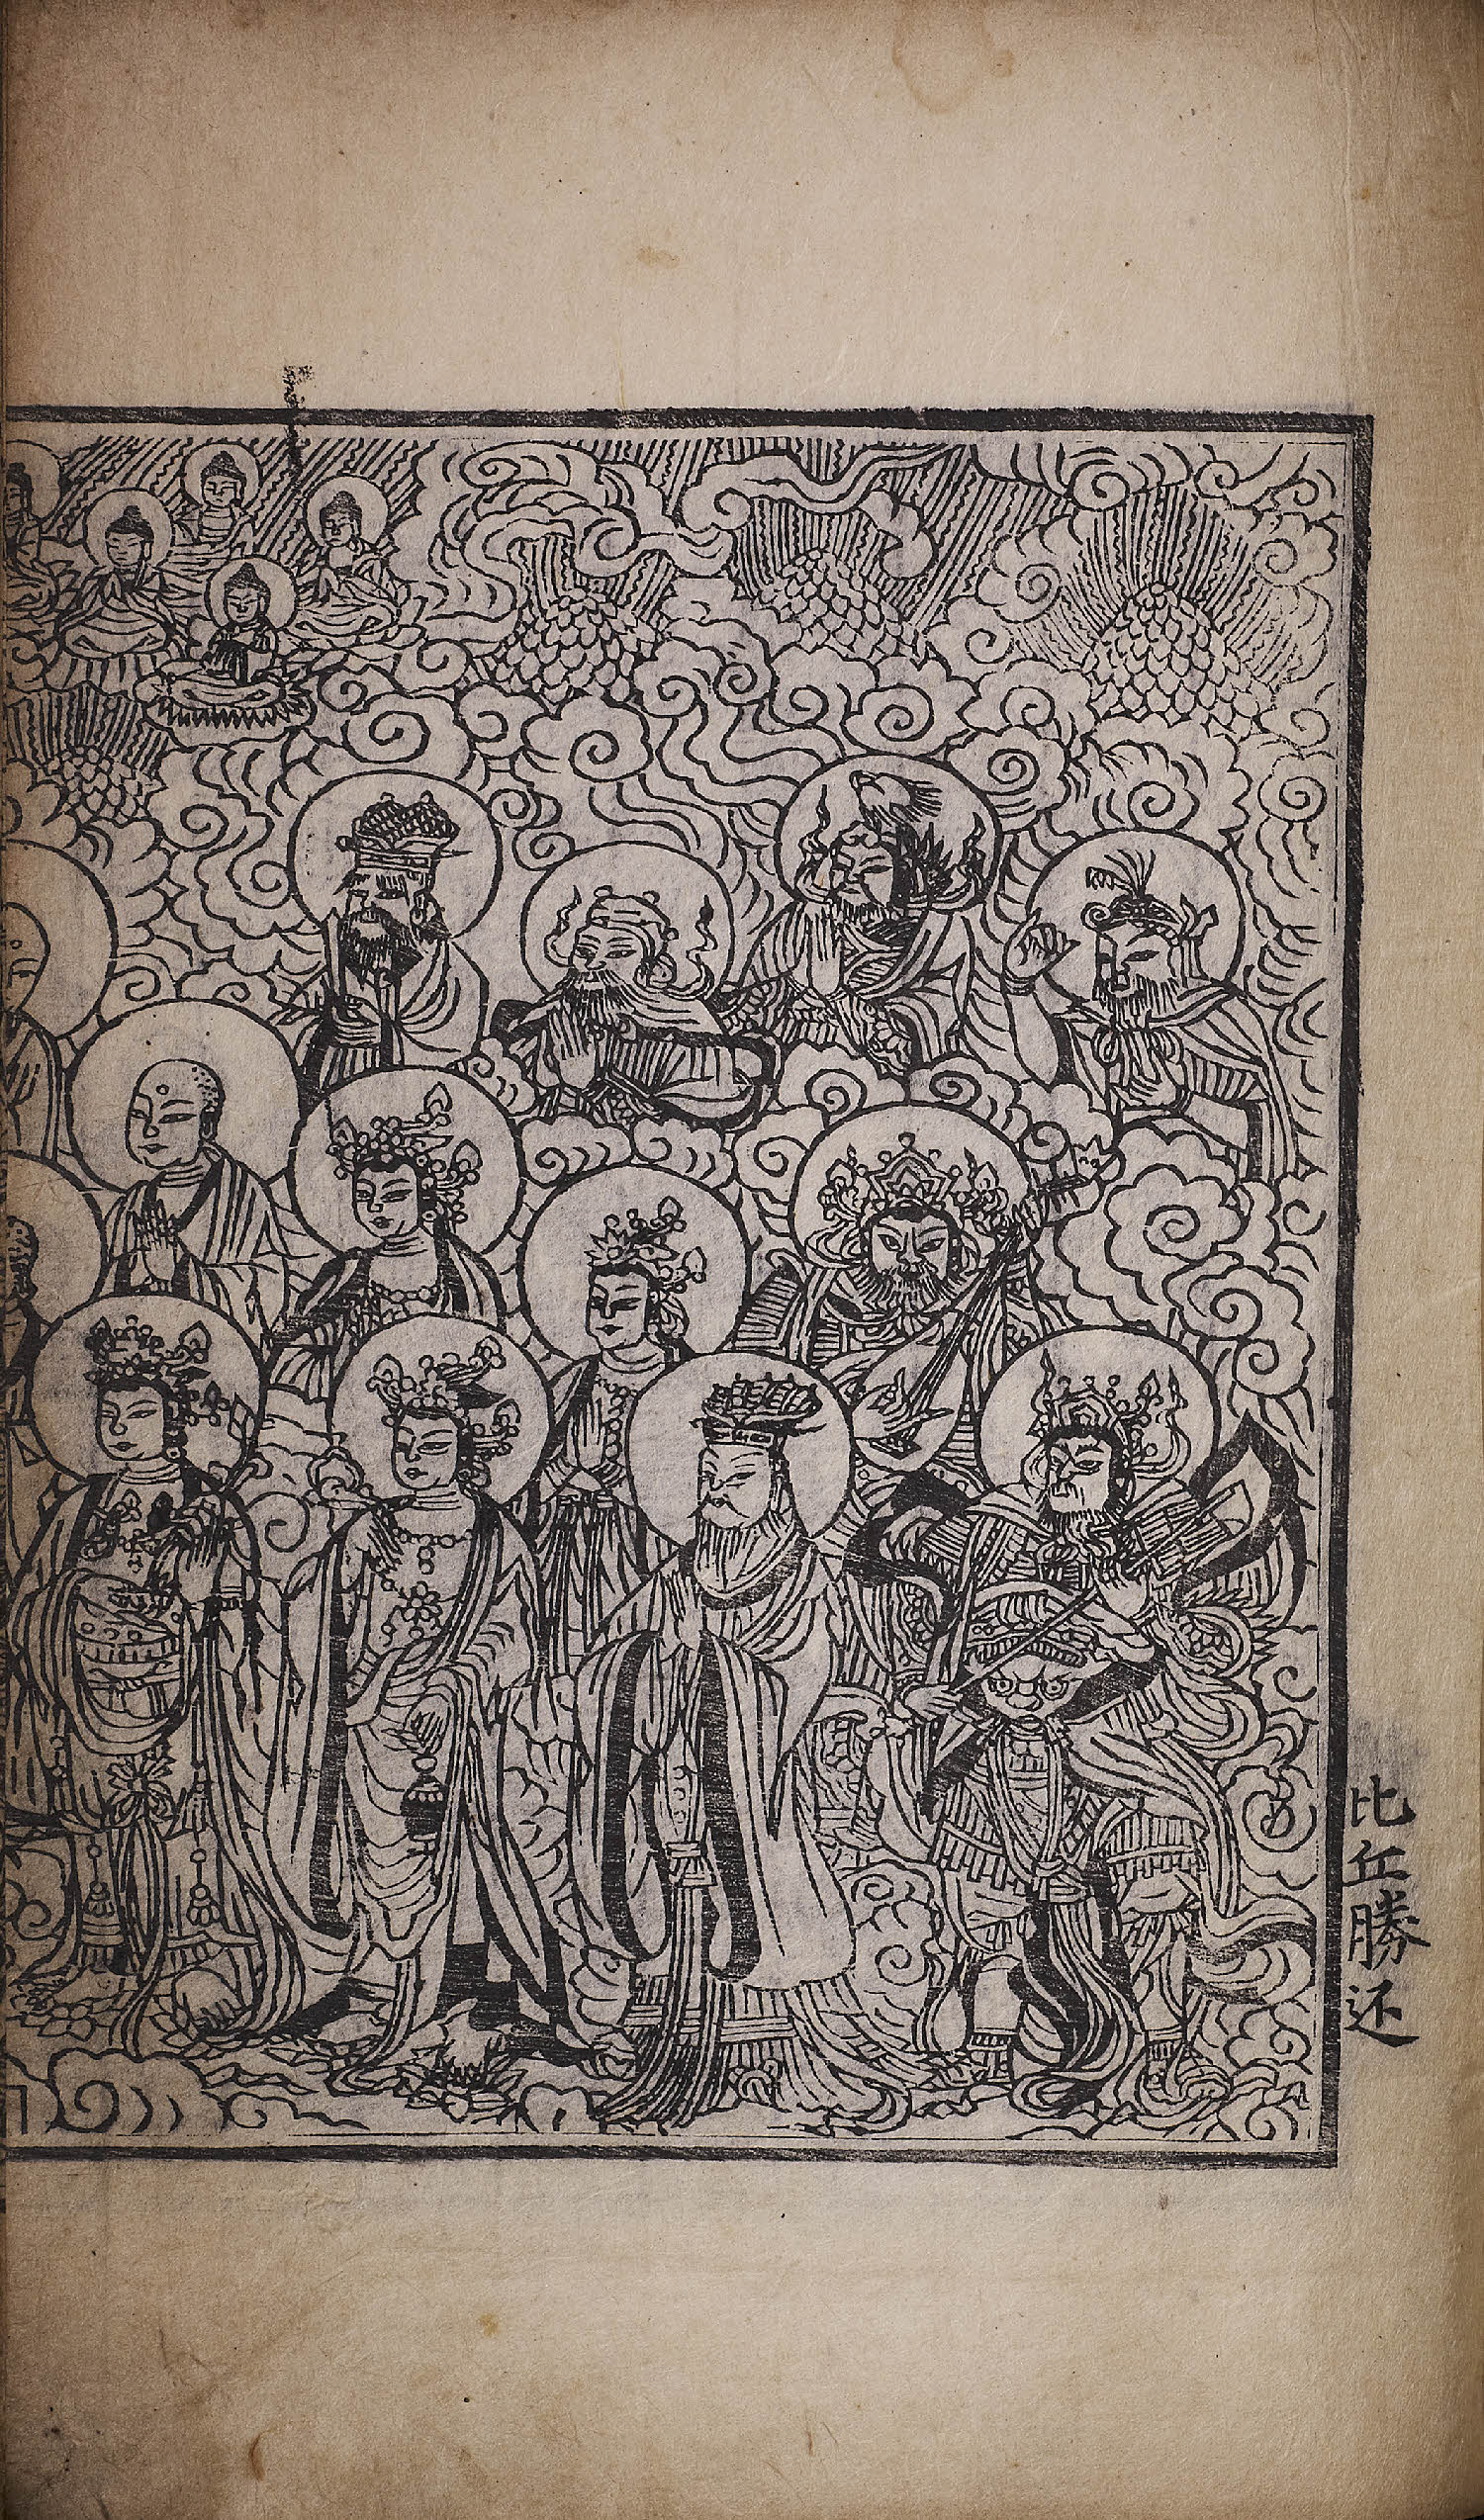 比丘勝还